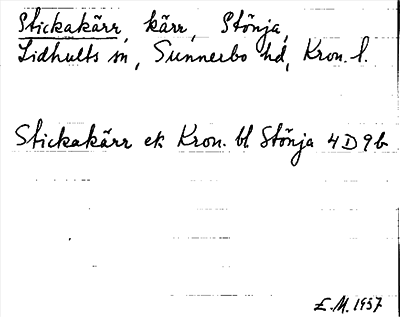 Stickakärr, kärr, Stönja,
Lidhults sn, Sunnerbo hd, Kron. l.
Stickakärr ek Kron. bl Stönja 4D9b
E.M. 1957